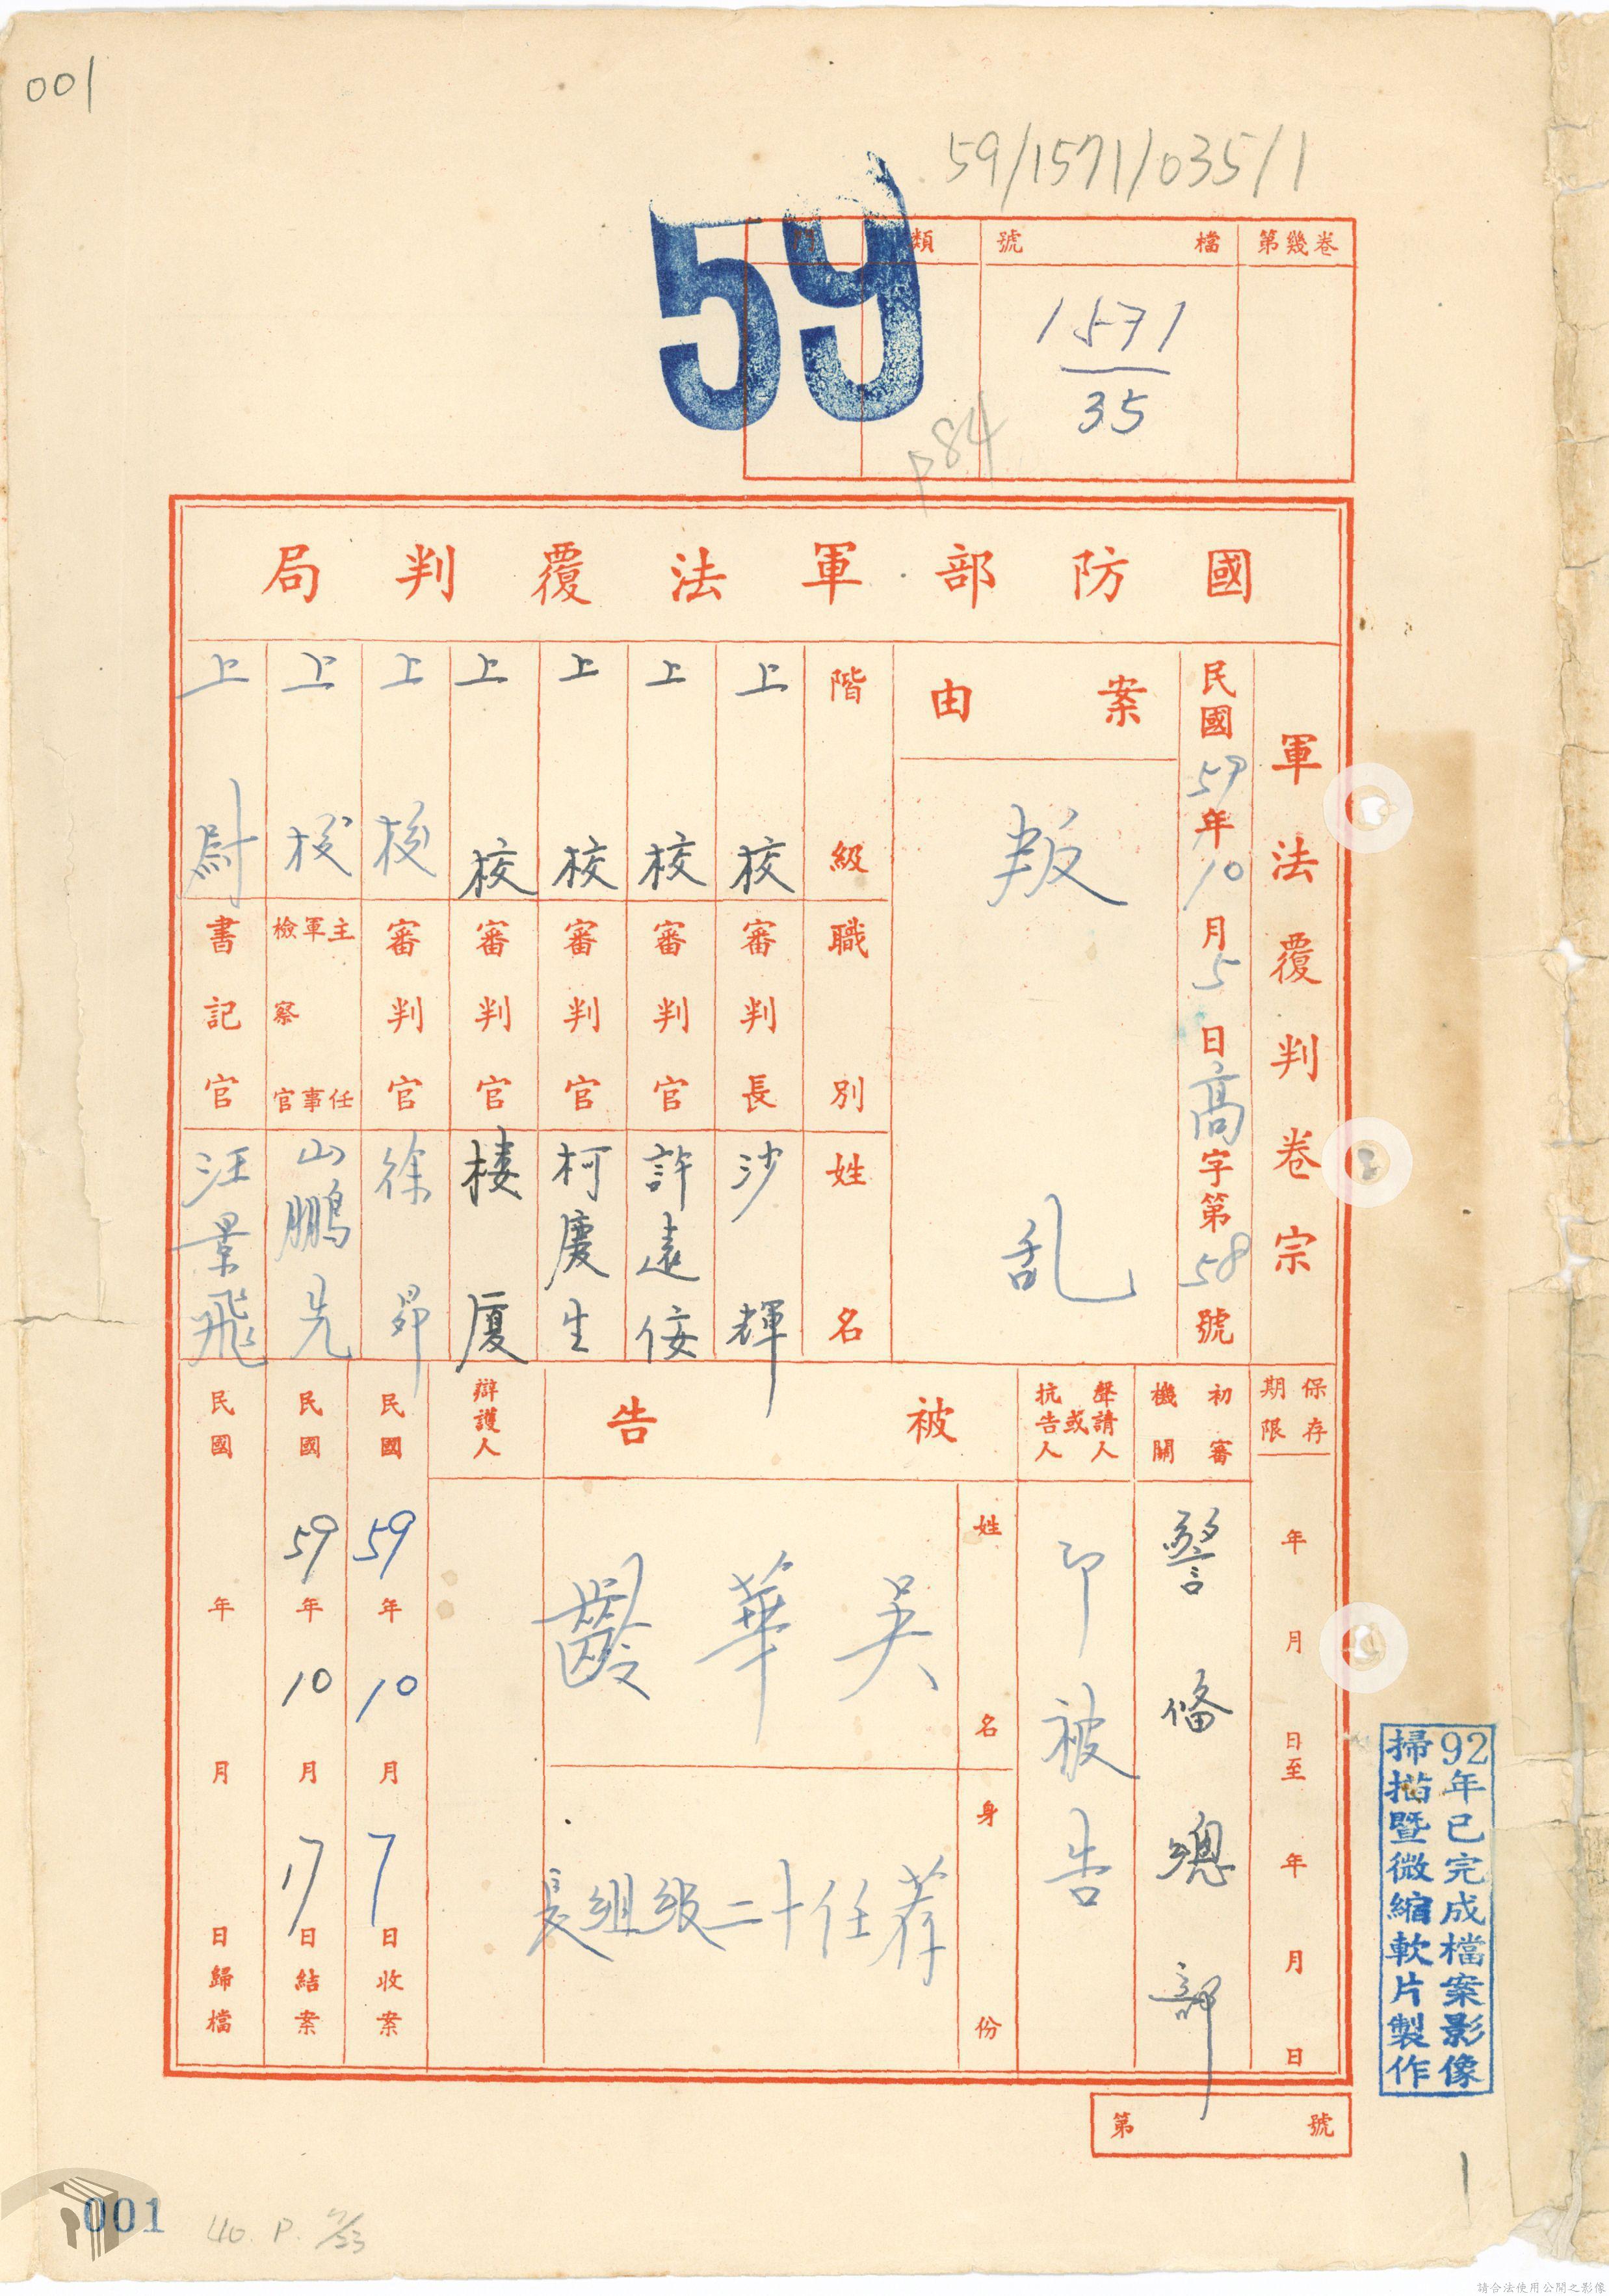 001
59/1571/035/1
59
第幾卷
檔號
類
門
1571
35
P84
國防部軍法覆判局
軍法覆判卷宗
民國59年10月5日高字第58號
案由
叛乱
階級
職別
姓名
上校 審判長 沙輝
上校 審判官 許遠佞
上校 審判官 柯慶生
上校 審判官 楼厦
上校 審判官 徐昴
上校 主任軍事檢察官 山鵬先
上尉 書記官 汪景飛
保存期限
年月日至年月日
初審機關
警備總部
聲請人或抗告人
即被告
被告
姓名
吳華齡
身份
荐任十二級組長
辯護人
民國59年10月7日收案
民國59年10月17日結案
民國年月日歸檔
第號
92年已完成檔案影像
掃描暨微縮軟片製作
1
001
40. P.
請合法使用公開之影像